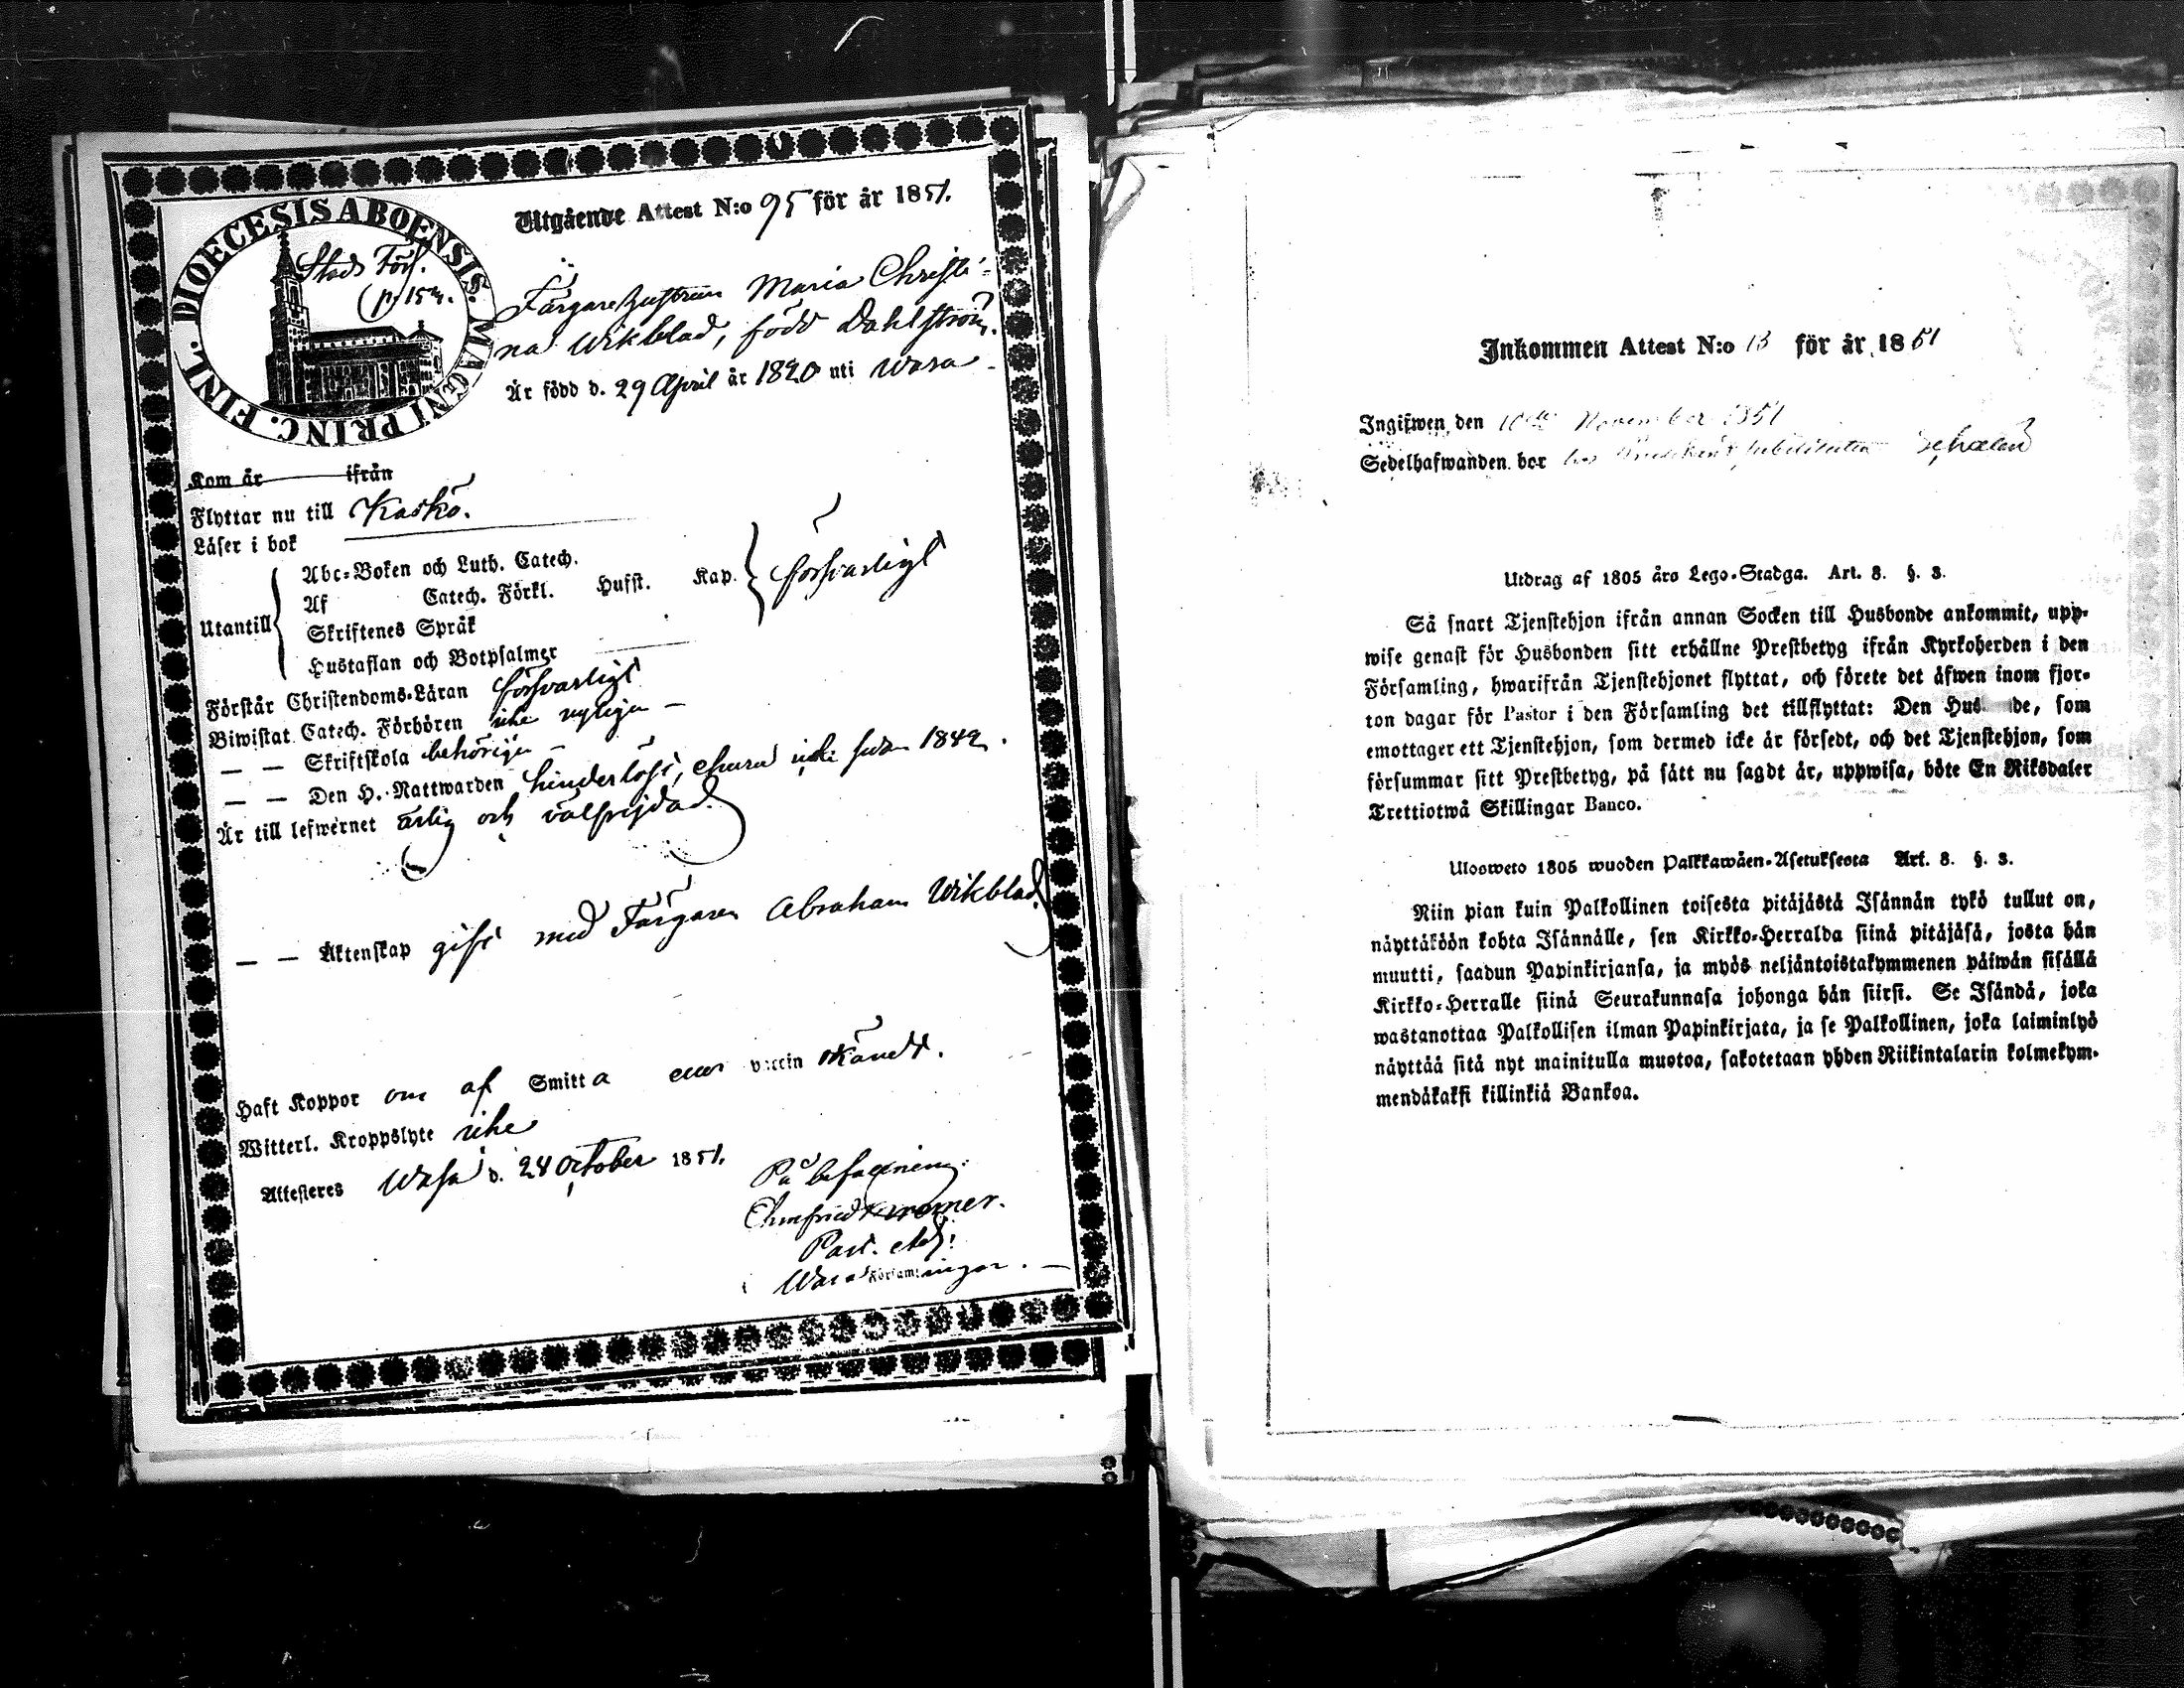 DIOECESIS ABOENSIS. MAGNI PRINC. FINL.
Stads Förs.
p. 152.
Utgående Attest N:o 95 för år 1851.
Färgarehustrun Maria Christi-
na Wikblad, född Dahlström.
Är född d. 29 April år 1820 uti Wasa
Kom år ifrån
Flyttar nu till Kaskö.
Läser i bok
Utantill
Abc-Boken och Luth. Catech.
Af Catech. Förkl. Husst. Kap. försvarligt
Skriftenes Språk
Hustaflan och Botpsalmer
Förstår Christendoms-Läran försvarligt
Biwistat Catech. Förhören icke nyligen —
— — Skriftskola behörigen —
— — Den H. Nattwarden hinderlöst, churu icke sedan 1842.
Är till lefwernet ärlig och välfrejdad.
— — Äktenskap gift med Färgaren Abraham Wikblad.
Haft Koppor om af Smitta eller vaccin okändt.
Witterl. Kroppslyte icke
Attesteres Wasa d. 24 October 1851.
På befallning:
Past. Adj:
Wasa Församlingar. —
Inkommen Attest N:o 13 för år 1851
Ingifwen den 10de November 1851
Sedelhafwanden bor hos
Utdrag af 1805 års Lego-Stadga. Art. 8. §. 3.
Så snart Tjenstehjon ifrån annan Socken till Husbonde ankommit, upp-
wise genast för Husbonden sitt erhållne Prestbetyg ifrån Kyrkoherden i den
Församling, hwarifrån Tjenstehjonet flyttat, och förete det äfwen inom fjor-
ton dagar för Pastor i den Församling det tillflyttat: Den Hus de, som
emottager ett Tjenstehjon, som dermed icke är försedt, och det Tjenstehjon, som
försummar sitt Prestbetyg, på sätt nu sagdt är, uppwisa, böte En Riksdaler
Trettiotwå Skillingar Banco.
Ulosweto 1805 wuoden Palkkawäen-Asetuksesta Art. 8. §. 3.
Niin pian kuin Palkollinen toisesta pitäjästä Isännän tykö tullut on,
näyttäköön kohta Isännälle, sen Kirkko-Herralda siinä pitäjäsä, josta hän
muutti, saadun Papinkirjansa, ja myös neljäntoistakymmenen päiwän sisällä
Kirkko-Herralle siinä Seurakunnasa johonga hän siirsi. Se Isändä, joka
wastanottaa Palkollisen ilman Papinkirjata, ja se Palkollinen, joka laiminlyö
näyttää sitä nyt mainitulla muotoa, sakotetaan yhden Riikintalarin kolmekym-
mendäkaksi killinkiä Bankoa.